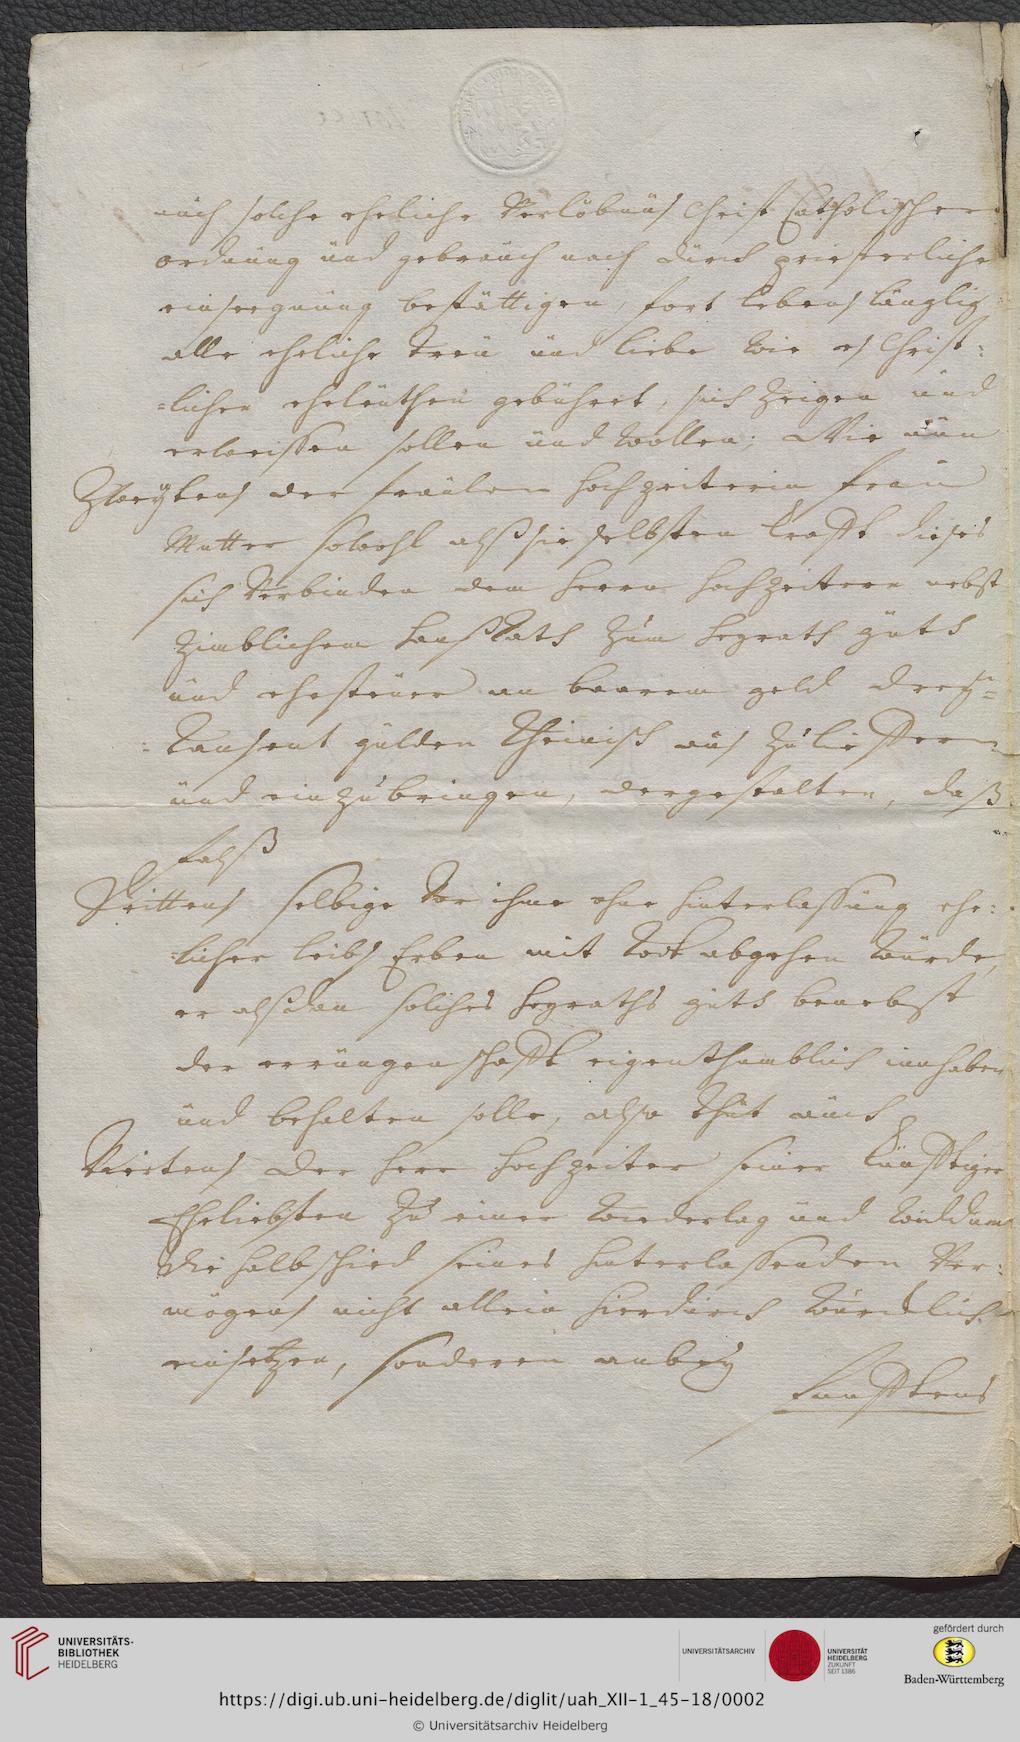 auch solche eheliche Verlöbnüs Christ Catholischer
ordnung und gebrauch nach durch priesterliche
einseegnung bestättigen, fort lebens länglig
alle eheliche treu und liebe wie es Christ=
=lichen eheleuthen gebühret, sich zeigen und
erweissen sollen und wollen; Wie nun
Zweytens der fräulen hochzeiterin frau
Mutter sowohl alß sie selbsten krafft dieses
sich Verbinden dem herrn hochzeitern nebst
zimblichem haußrath zum heyrath guth
und ehesteuer an baarem geld drey=
=tausent gulden Rheinisch aus zu lieffern
und einzubringen, dergestalten, daß
falß
Drittens selbige vor ihme ohne hinterlassung ehe=
=licher leibs Erben mit todt abgehen würde,
er alsdan solches heyraths guth benebst
der errungenschafft eigenthumblich innhaben
und behalten solle, also thut auch
Viertens der herr hochzeiter seiner künfftigen
Eheliebsten zu einer wiederlag und widdum
die halbschied seines hinterlassenden Ver=
mögens nicht allein hierdurch würcklich
einsetzen, sonderen anbey
Fünfftens
UNIVERSITÄTS-
BIBLIOTHEK
HEIDELBERG
UNIVERSITÄTSARCHIV
UNIVERSITÄT
HEIDELBERG
ZUKUNFT
SEIT 1386
gefördert durch
Baden-Württemberg
https://digi.ub.uni-heidelberg.de/diglit/uah_XII-1_45-18/0002
© Universitätsarchiv Heidelberg